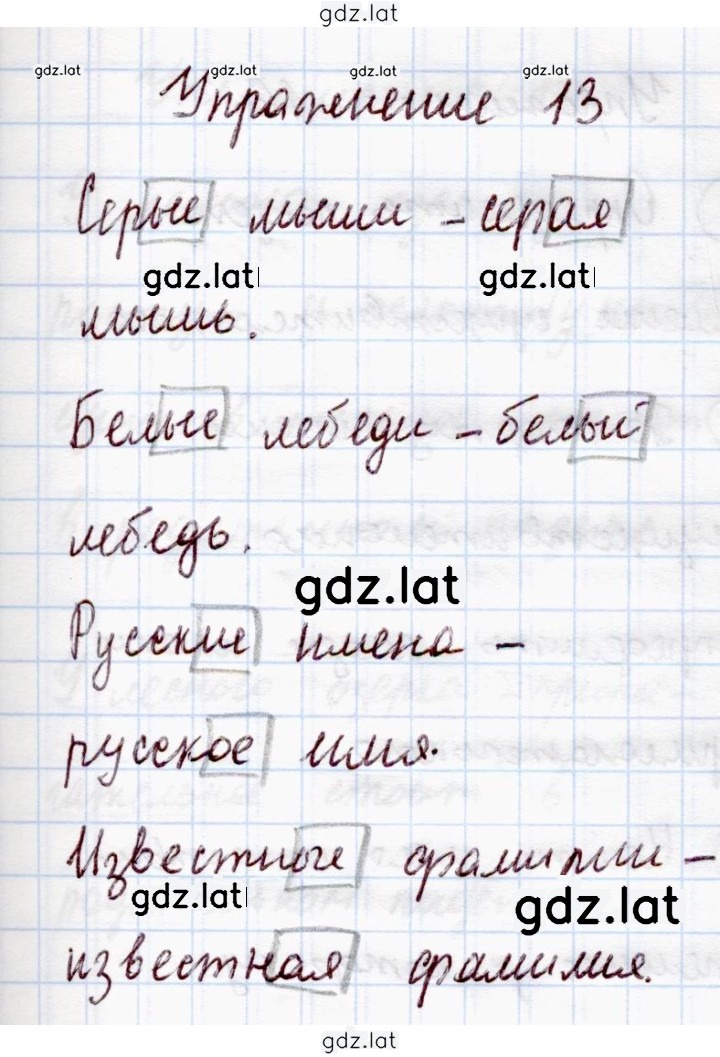 gdz.lat
gdz.lat gdz.lat gdz.lat gdz.lat
Упражнение 13
Серые мыши - серая
gdz.lat gdz.lat
мышь.
Белые лебеди - белый
лебедь.
gdz.lat
Русские имена -
русское имя.
Известные фамилии -
gdz.lat gdz.lat
известная фамилия.
gdz.lat